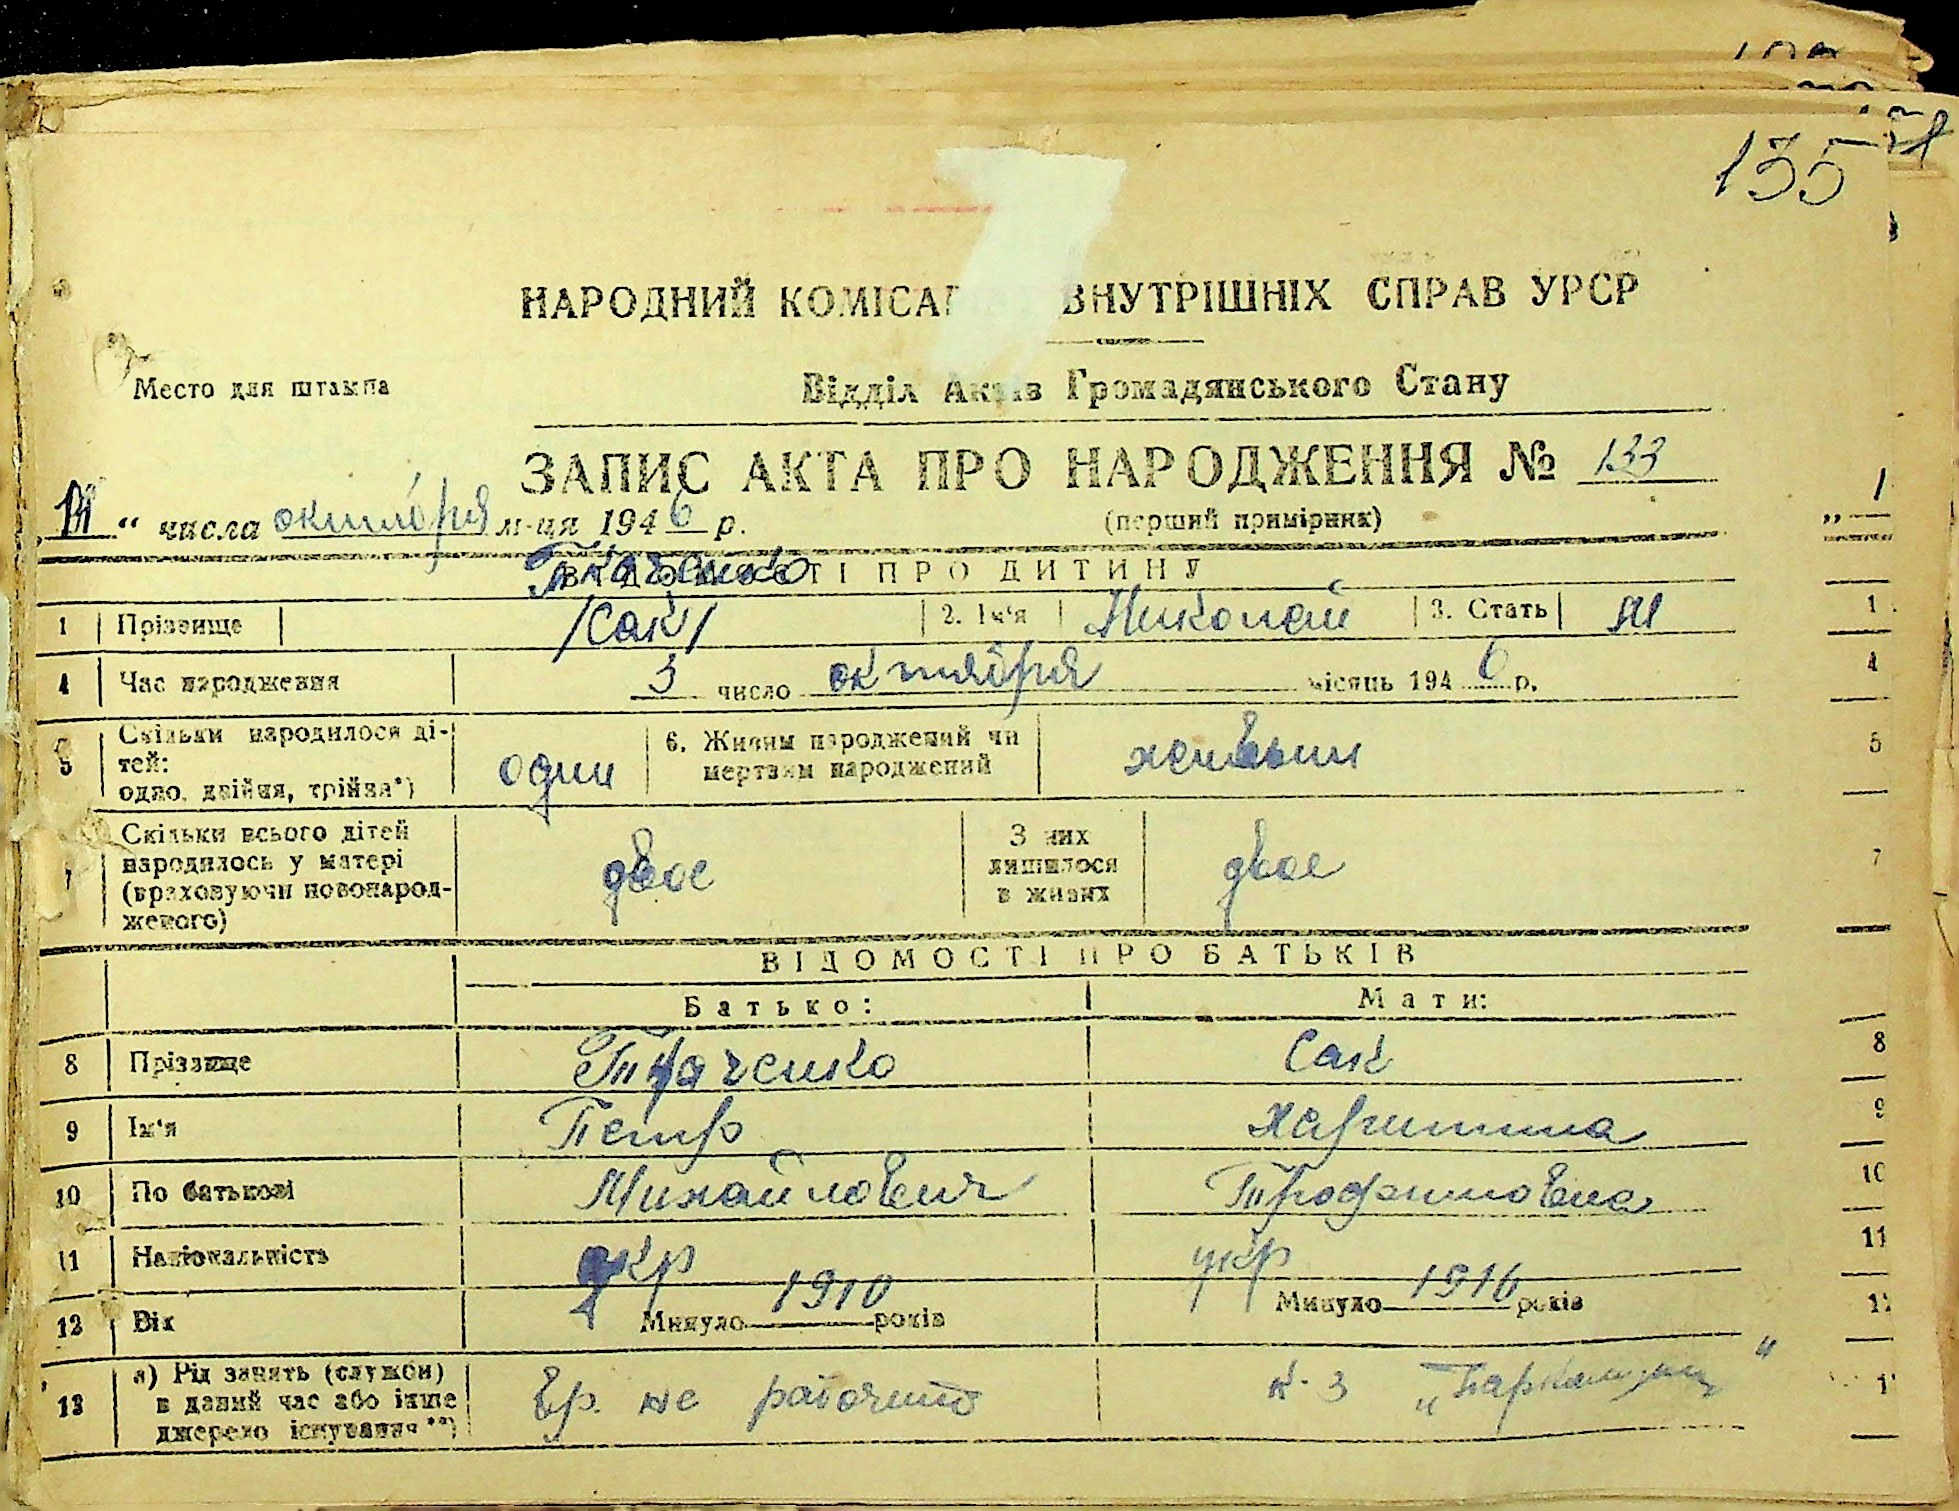 135
НАРОДНИЙ КОМІСАР ВНУТРІШНІХ СПРАВ УРСР
Место для штампа
Відділ Актів Громадянського Стану
ЗАПИС АКТА ПРО НАРОДЖЕННЯ № 133
(перший примірник)
“ числа октября м-ця 1946 р.
ВІДОМОСТІ ПРО ДИТИНУ
Ткаченко
1 Прізвище /Сак/ 2. Ім‘я Николай 3. Стать м
4 Час народження 3 число октября місяць 1946 р.
5 Скільки народилося ді-
тей:
одно, двійня, трійня*) один 6. Живим народжений чи
мертвим народжений живым
7 Скільки всього дітей
народилось у матері
(враховуючи новонарод-
женого) двое З них
лишилося
в живих двое
ВІДОМОСТІ ПРО БАТЬКІВ
Батько: Мати:
8 Прізвище Ткаченко Сак
9 Ім‘я Петр Харитина
10 По батькові Михайлович Трофимовна
11 Національність укр укр
12 Вік Минуло 1910 років Минуло 1916 років
13 а) Рід занять (служби)
в даний час або інше
джерело існування**) Вр. не работает к-з